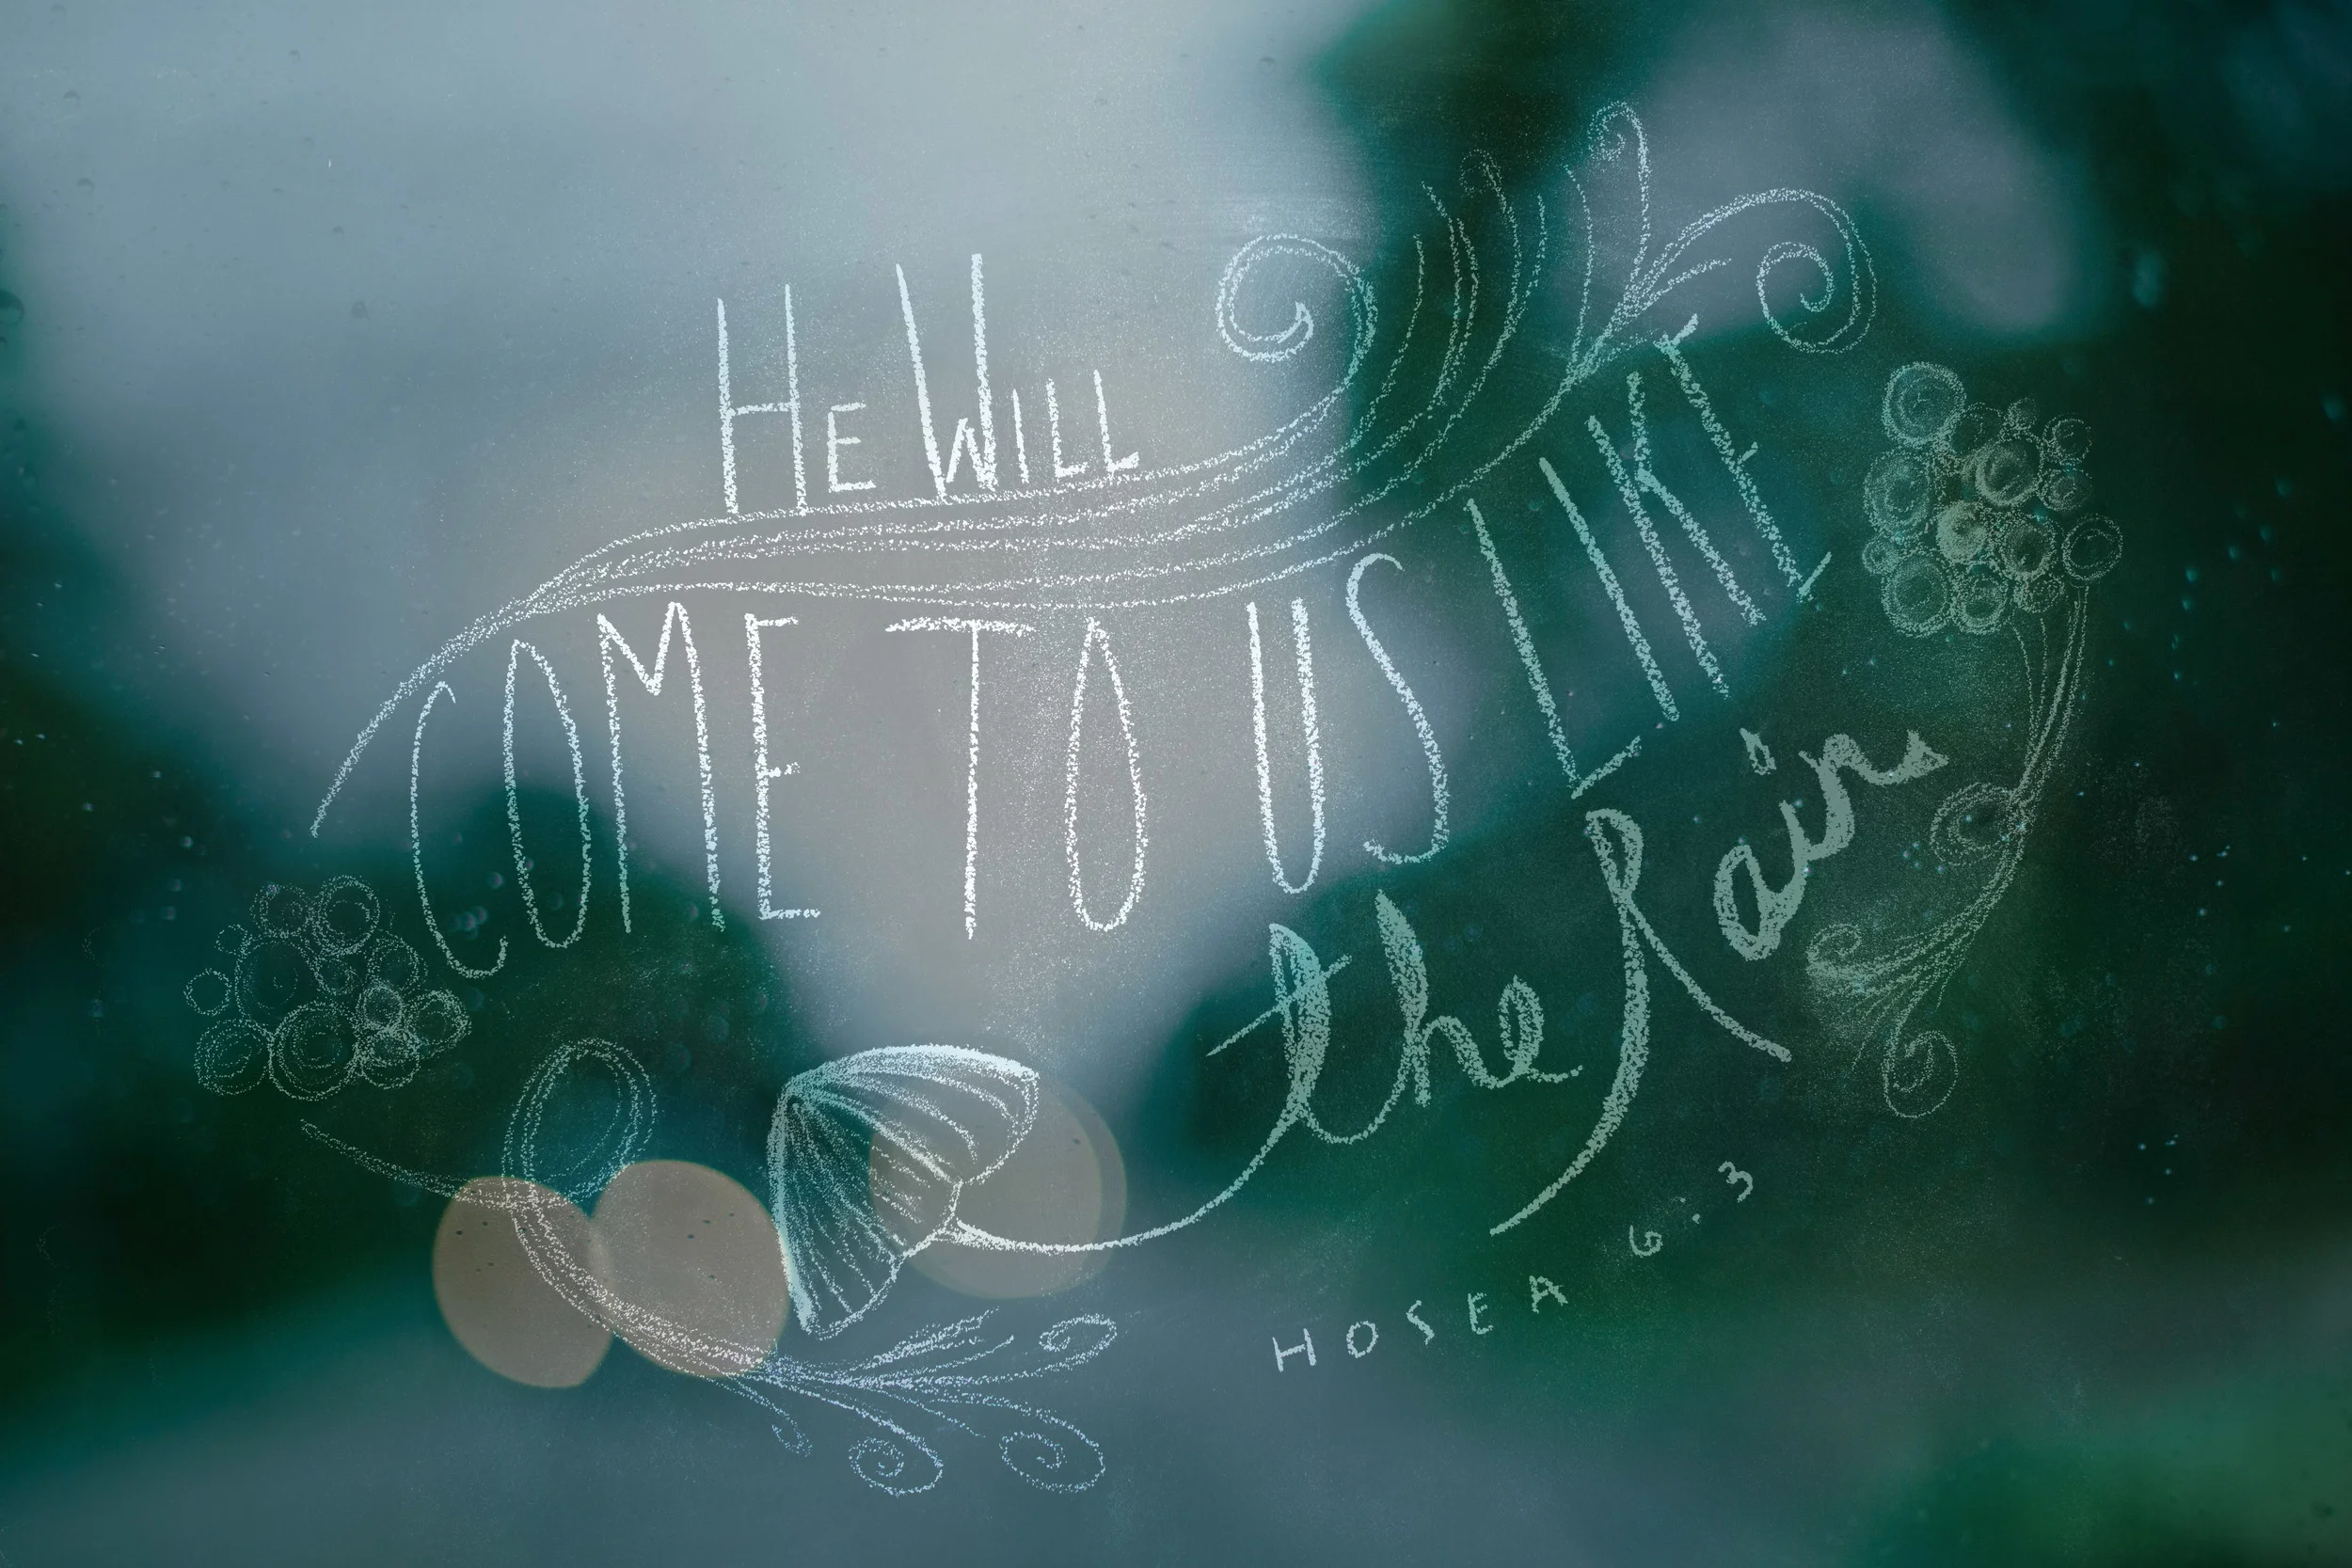 He Will
COME TO US LIKE
the Rain
HOSEA 6:3